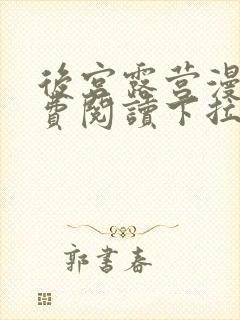 後宮露营漫
費閱讀下拉
郭書春